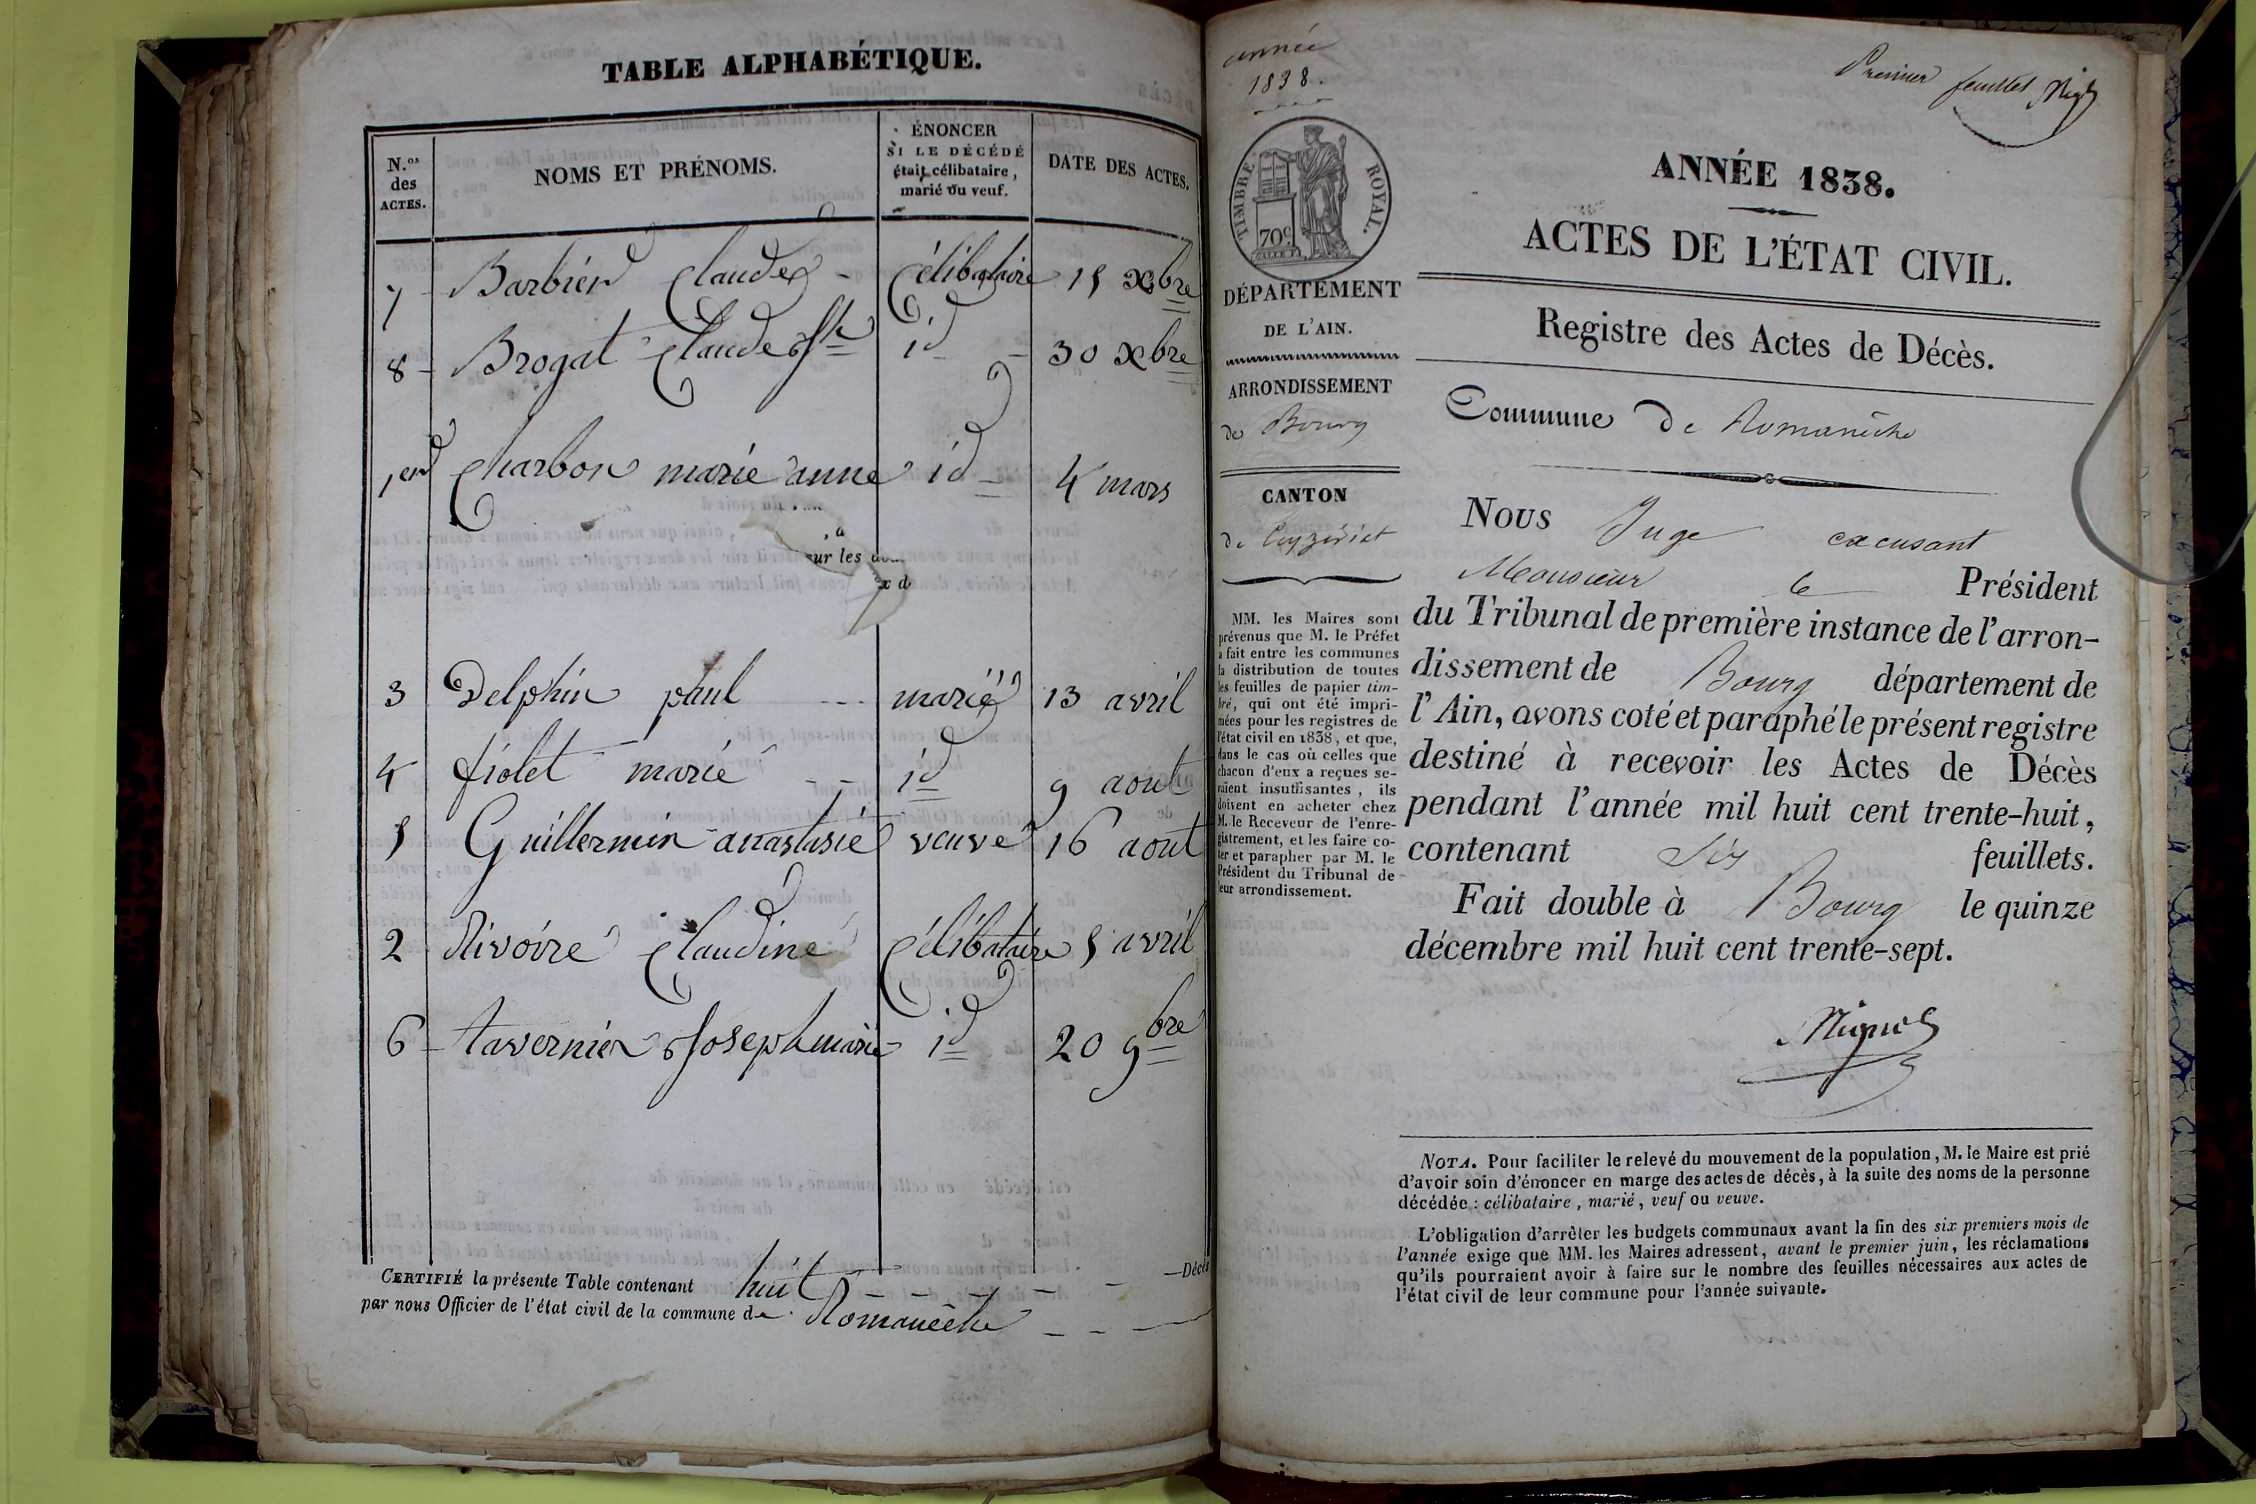 TABLE ALPHABÉTIQUE.
N.os des ACTES.
NOMS ET PRÉNOMS.
ÉNONCER
SI LE DÉCÉDÉ
était célibataire,
marié ou veuf.
DATE DES ACTES.
7 Barbier Claude - Célibataire 15 Xbre
8 - Brogat Claude id - 30 Xbre
1er Charbon marie anne id 4 mars
, à
sur les
x d
3 Delphin paul --- marié 13 avril
4 fiolet marie -- id 9 aout
5 Guillermin anastasie veuve 16 aout
2 Rivoire Claudine Célibataire 5 avril
6 - tavernier Joseph marie id 20 9bre
CERTIFIÉ la présente Table contenant huit Décès
par nous Officier de l'état civil de la commune de Romanêche
année
1838.
Premier feuillet
TIMBRE ROYAL.
70c
DÉPARTEMENT
DE L'AIN.
ARRONDISSEMENT
de Bourg
CANTON
de Ceyzériat
MM. les Maires sont
prévenus que M. le Préfet
a fait entre les communes
la distribution de toutes
les feuilles de papier tim-
bré, qui ont été impri-
mées pour les registres de
l'état civil en 1838, et que,
dans le cas où celles que
chacun d'eux a reçues se-
raient insuffisantes, ils
doivent en acheter chez
M. le Receveur de l'enre-
gistrement, et les faire co-
ter et parapher par M. le
Président du Tribunal de
leur arrondissement.
ANNÉE 1838.
ACTES DE L'ÉTAT CIVIL.
Registre des Actes de Décès.
Commune de Romanêche
Nous Juge excusant
Monsieur le Président
du Tribunal de première instance de l'arron-
dissement de Bourg département de
l'Ain, avons coté et paraphé le présent registre
destiné à recevoir les Actes de Décès
pendant l'année mil huit cent trente-huit,
contenant six feuillets.
Fait double à Bourg le quinze
décembre mil huit cent trente-sept.
NOTA. Pour faciliter le relevé du mouvement de la population, M. le Maire est prié
d'avoir soin d'énoncer en marge des actes de décès, à la suite des noms de la personne
décédée : célibataire, marié, veuf ou veuve.
L'obligation d'arrêter les budgets communaux avant la fin des six premiers mois de
l'année exige que MM. les Maires adressent, avant le premier juin, les réclamations
qu'ils pourraient avoir à faire sur le nombre des feuilles nécessaires aux actes de
l'état civil de leur commune pour l'année suivante.